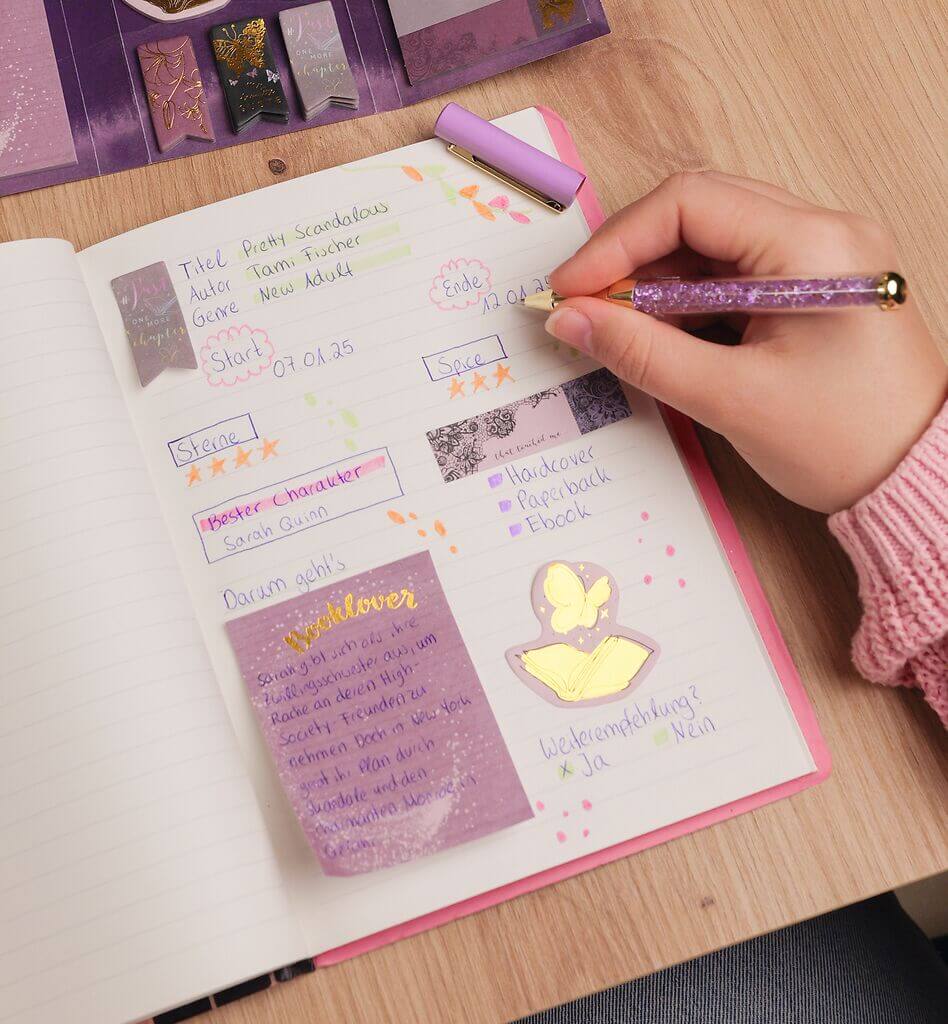 #Just
ONE MORE
chapter
Titel Pretty Scandalous
Autor Tami Fischer
Genre New Adult
#Just
ONE
MORE
chapter
Start 07.01.25
Ende
12.01.2
Sterne
Spice
that touched me
Bester Charakter
Sarah Quinn
Hardcover
Paperback
Ebook
Darum geht's
Booklover
Sarah gibt sich als ihre
Zwillingsschwester aus, um
Rache an deren High-
Society-Freunden zu
nehmen Doch in New York
gerät ihr Plan durch
Skandale und den
charmanten Monroe in
Gefahr
Weiterempfehlung?
x Ja
Nein